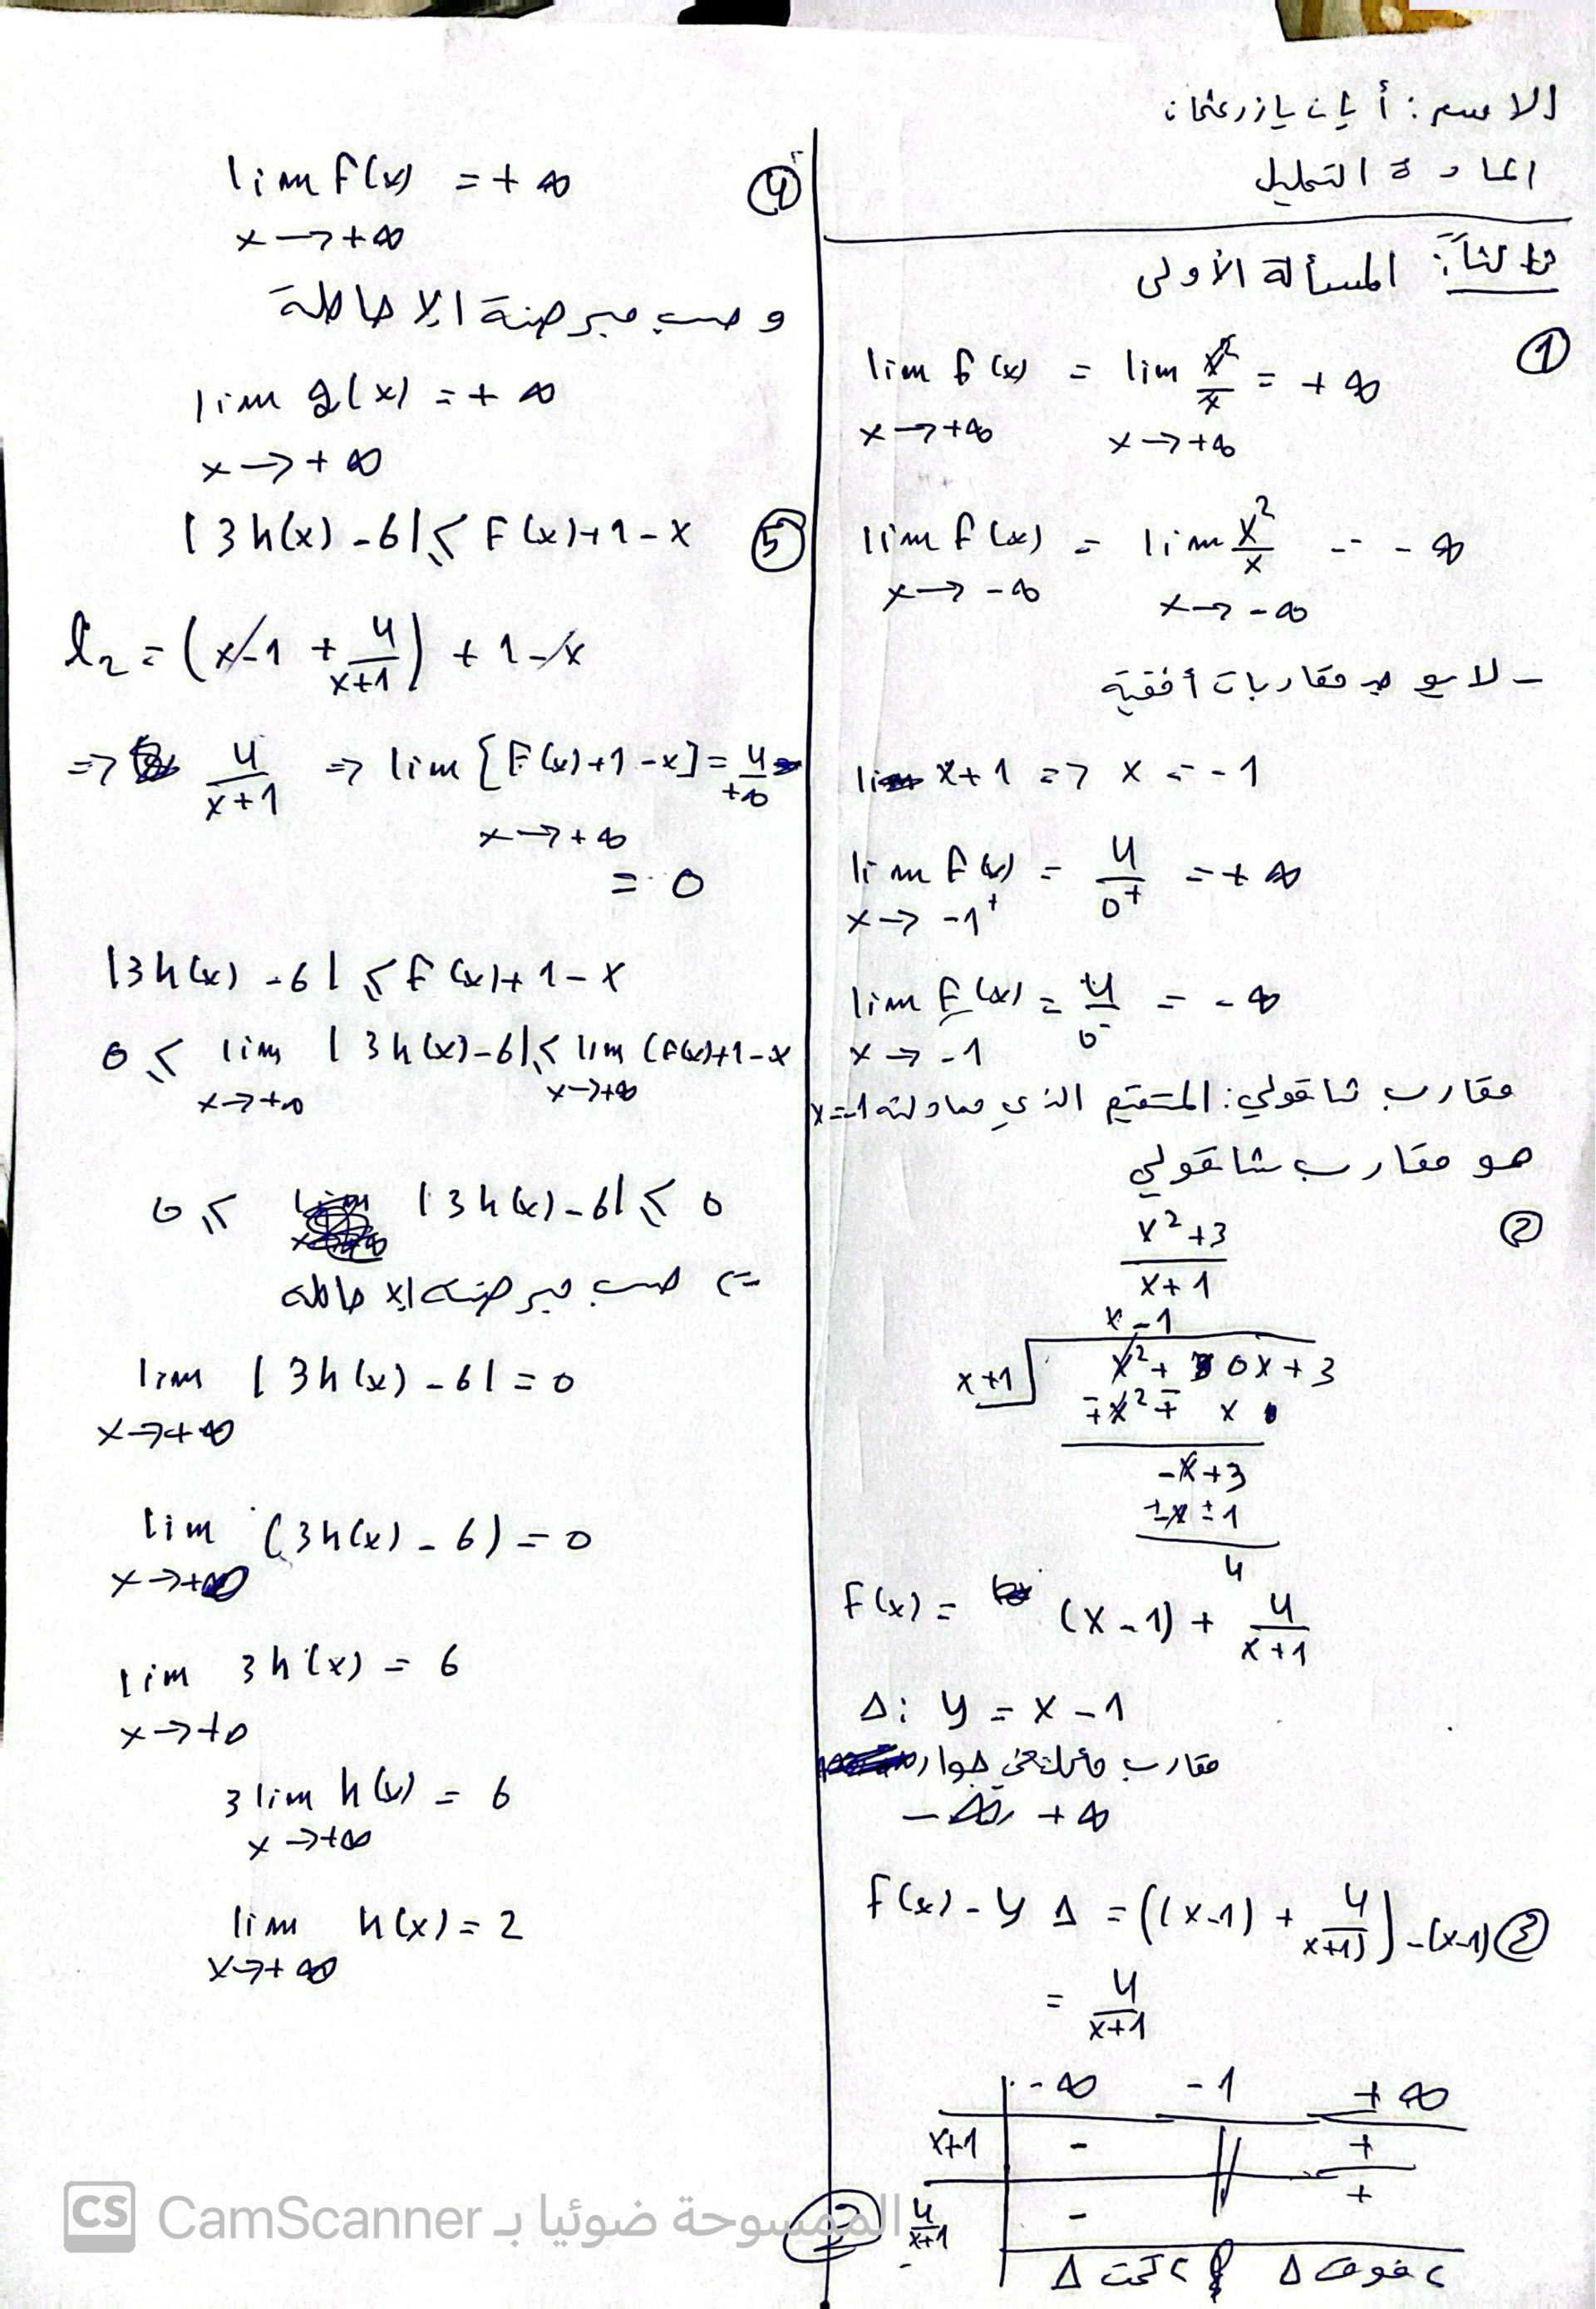 الاسم: أ يازر عثمان
المادة التحليل
ثالثاً: المسألة الأولى
①
lim f(x) = lim x²/x = +∞
x→+∞ x→+∞
lim f(x) = lim x²/x = -∞
x→-∞ x→-∞
- لا يوجد مقاربات أفقية
x+1 => x = -1
lim f(x) = 4/0⁺ = +∞
x→ -1⁺
lim f(x) = 4/0⁻ = -∞
x→ -1
مقارب شاقولي: المستقيم الذي معادلته x=-1
هو مقارب شاقولي
②
x²+3
x+1
x-1
x+1 x²+ 0x+3
∓x² ∓ x
-x+3
±x ±1
4
f(x) = (x-1) + 4/(x+1)
Δ: y = x-1
مقارب مائل في جوار
+∞
f(x) - yΔ = ((x-1) + 4/(x+1)) - (x-1) ③
= 4/(x+1)
-∞ -1 +∞
x+1 - || +
4/(x+1) - +
c تحت Δ c فوق Δ
④
lim f(x) = +∞
x→+∞
وحسب مبرهنة الإحاطة
lim g(x) = +∞
x→+∞
|3h(x)-6| ≤ f(x)+1-x ⑤
l₂ = (x-1 + 4/(x+1)) + 1-x
=> 4/(x+1) => lim [f(x)+1-x] = 4/+∞
x→+∞
= 0
|3h(x)-6| ≤ f(x)+1-x
0 ≤ lim |3h(x)-6| ≤ lim (f(x)+1-x
x→+∞ x→+∞
0 ≤ |3h(x)-6| ≤ 0
=> حسب مبرهنة الإحاطة
lim |3h(x)-6| = 0
x→+∞
lim (3h(x)-6) = 0
x→+∞
lim 3h(x) = 6
x→+∞
3 lim h(x) = 6
x→+∞
lim h(x) = 2
x→+∞
CS CamScanner الممسوحة ضوئيا بـ